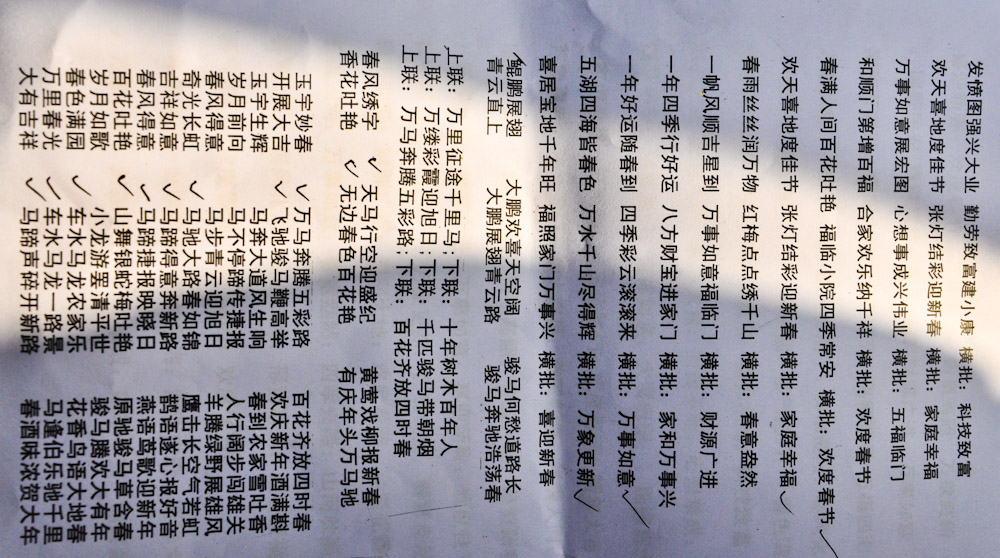 发愤图强兴大业 勤劳致富建小康 横批：科技致富
欢天喜地度佳节 张灯结彩迎新春 横批：家庭幸福
万事如意展宏图 心想事成兴伟业 横批：五福临门
和顺门第增百福 合家欢乐纳千祥 横批：欢度春节
春满人间百花吐艳 福临小院四季常安 横批：欢度春节
欢天喜地度佳节 张灯结彩迎新春 横批：家庭幸福
春雨丝丝润万物 红梅点点绣千山 横批：春意盎然
一帆风顺吉星到 万事如意福临门 横批：财源广进
一年四季行好运 八方财宝进家门 横批：家和万事兴
一年好运随春到 四季彩云滚滚来 横批：万事如意
五湖四海皆春色 万水千山尽得辉 横批：万象更新
喜居宝地千年旺 福照家门万事兴 横批：喜迎新春
鲲鹏展翅 大鹏欢喜天空阔 骏马何愁道路长
青云直上 大鹏展翅青云路 骏马奔驰浩荡春
上联：万里征途千里马；下联：十年树木百年人
上联：万缕彩霞迎旭日；下联：千匹骏马带朝烟
上联：万马奔腾五彩路；下联：百花齐放四时春
春风绣宇 天马行空迎盛纪 黄莺戏柳报新春
香花吐艳 无边春色百花艳 有庆年头万马驰
玉宇妙春 万马奔腾五彩路 百花齐放四时春
开展大吉 飞驰骏马鞭高举 欢庆新年酒满斟
玉宇生辉 马奔大道风生响 春到农家雪吐香
岁月前向 马不停蹄传捷报 人行阔步闯雄关
春风得意 马步青云迎旭日 羊腾绿野展雄风
奇光长虹 马驰大路春如锦 鹰击长空气若虹
吉祥如意 马蹄得意奔新路 鹊语遂心报好音
春风得意 马蹄捷报映晓日 燕语莺歌迎新年
百花吐艳 山舞银蛇梅吐艳 原驰骏马草含春
岁月如歌 小龙游罢清平世 骏马腾欢大有年
春色满园 车水马龙农家乐 花香鸟语大地春
万里春光 车水马龙一路景 马逢伯乐驰千里
大有吉祥 马蹄声碎开新路 春酒味浓贺大年